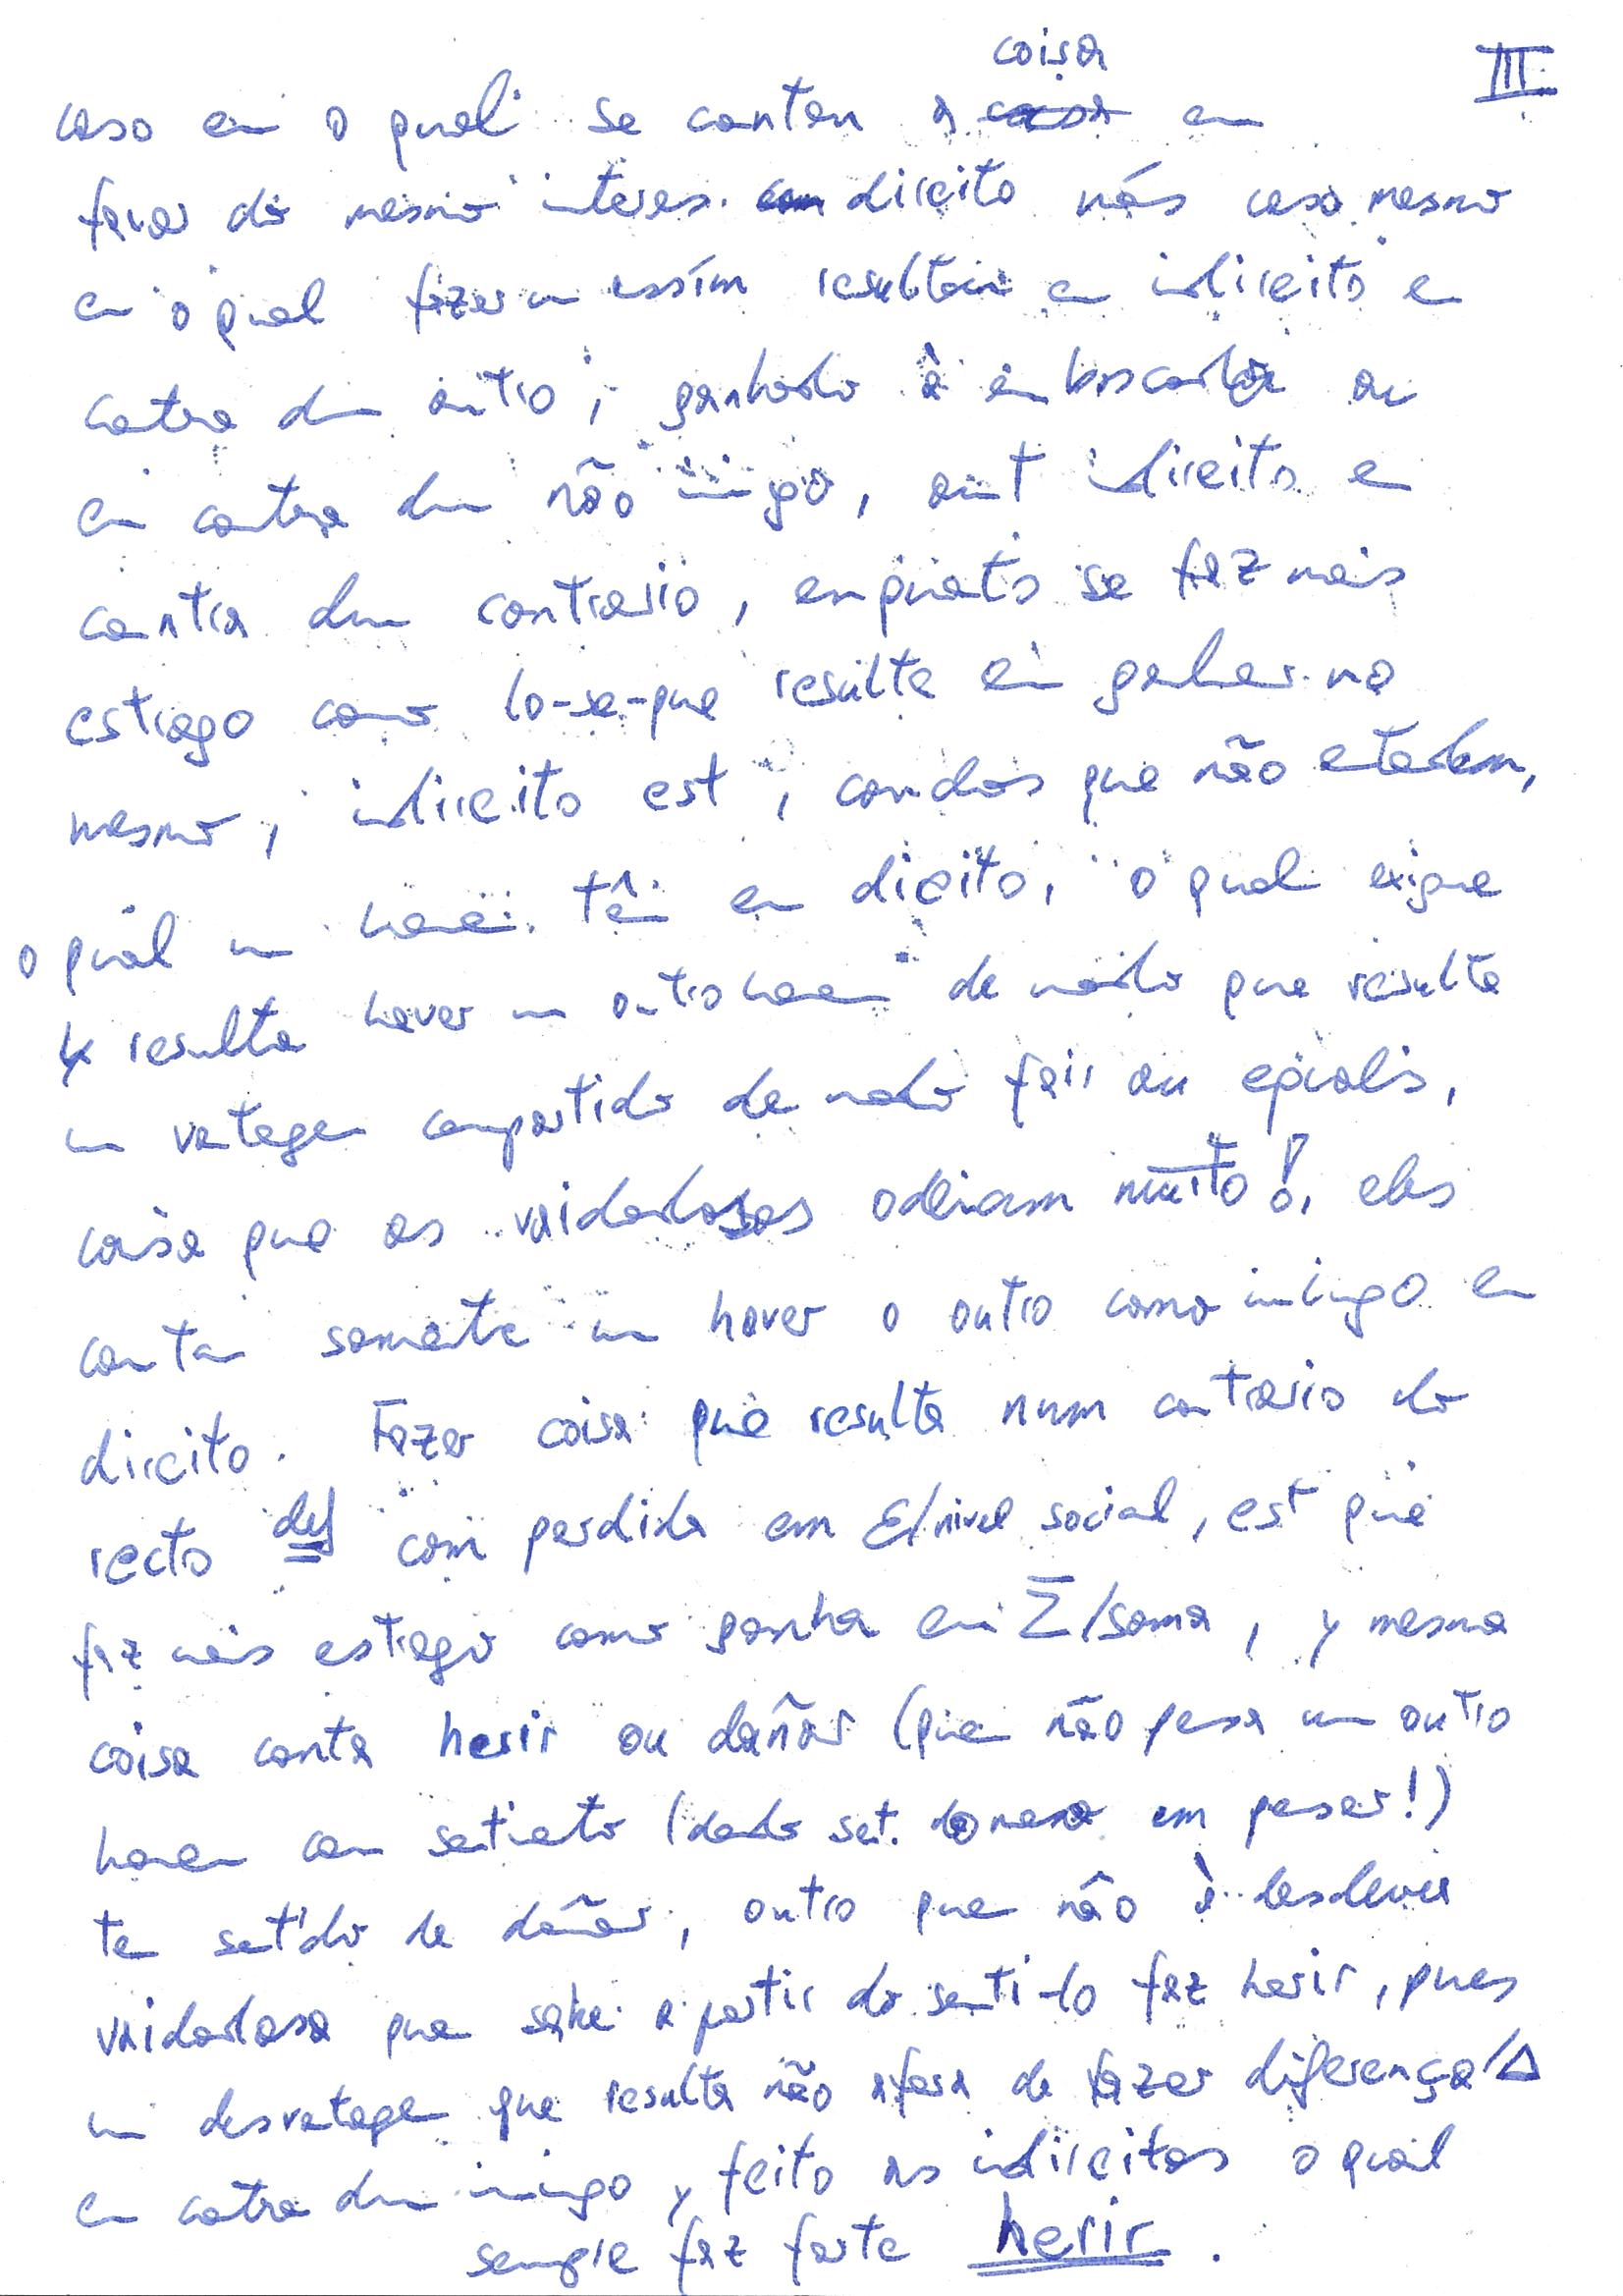 III.
coisa
caso em o qual se contam a casa em
favor do mesmo interes. com direito más caso mesmo
em o qual fazer um assím resultam em indireito e
contra dum outro, ganhado à emboscada ou
em contra dum não inimigo, aut indireito e
contra dum contrario, enquato se faz mais
estrago como lo-se-que resulte em ganhar no
mesmo, indireito est, condos que não etedem,
o qual um homem têm em direito, o qual exigue
y resulta haver um outro homem de modo que resulte
um vatagem compartido de modo fair ou equiali,
coisa que os vaidadosos odeiam muito!, eles
contam somente um haver o outro como inimigo em
direito. Fazer coisa que resulta num contrario do
recto def com perdida em E/nivel social, est que
faz mais estrago como ganha em Σ/soma, y mesma
coisa conta herir ou dañar (quem não pesa um outro
homem com setimeto (dado set. do meno em pesar!)
tem setido de dañar, outro que não à desdever
vaidadosa que sabe a partir do sentido faz herir, pues
um desvatagem que resulta não afasa de fazer diferença/Δ
em contra dum inimigo y feito as indireitas o qual
sempre faz forte herir.